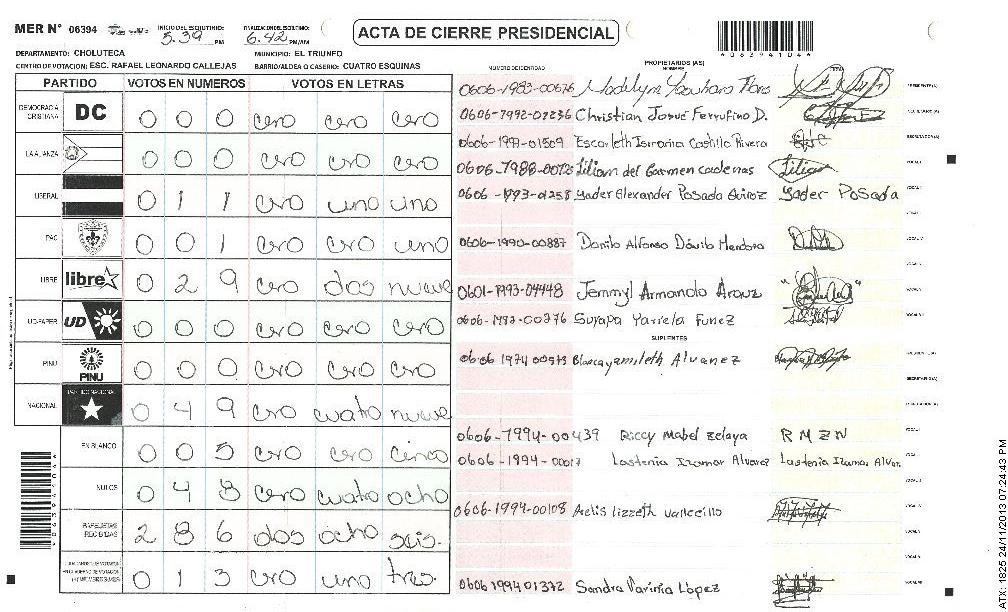 MER N° 06394 INICIO DEL ESCRUTINIO: 5.39 PM FINALIZACION DEL ESCRUTINIO: 6.42 PM/AM
ACTA DE CIERRE PRESIDENCIAL
063941044
DEPARTAMENTO: CHOLUTECA MUNICIPIO: EL TRIUNFO
CENTRO DE VOTACION: ESC. RAFAEL LEONARDO CALLEJAS BARRIO/ALDEA O CASERIO: CUATRO ESQUINAS
PARTIDO VOTOS EN NUMEROS VOTOS EN LETRAS
DEMOCRACIA CRISTIANA DC 0 0 0 cero cero cero
LA ALIANZA 0 0 0 cero cero cero
LIBERAL 0 1 1 cero uno uno
PAC 0 0 1 cero cero uno
LIBRE libre 0 2 9 cero dos nueve
UD-FAPER UD 0 0 0 cero cero cero
PINU PINU 0 0 0 cero cero cero
NACIONAL PARTIDO NACIONAL 0 4 9 cero cuatro nueve
EN BLANCO 0 0 5 cero cero cinco
NULOS 0 4 8 cero cuatro ocho
PAPELETAS RECIBIDAS 2 8 6 dos ocho seis.
0 1 3 cero uno tres.
NUMERO DE IDENTIDAD PROPIETARIOS (AS) NOMBRE
0606-1983-00676 PRESIDENTE(A)
0606-1992-02236 Christian Josué Ferrufino D. SECRETARIO(A)
0606-1991-01509 Escarleth Ismania Castillo Rivera ESCRUTADOR(A)
Lilian del Carmen cadenas Lilian VOCAL I
0606-1993-01258 Yader Alexander Posada Quiroz Yader Posada
0606-1990-00887 Danilo Alfonso Dávila Mendoza
0601-1993-04448 Jemmyl Armando Arauz
Suyapa Yamela Funez
SUPLENTES
0606 1974 00573 Blanca yamileth Alvarez PRESIDENTE(A)
SECRETARIO(A)
ESCRUTADOR(A)
0606-1994-00439 Riccy Mabel Zelaya R M Z N
0606-1994-00017 Lastenia Izamar Alvarez Lastenia Izamar Alvar.
0606-1994-00108 Aelis lizzeth vallecillo
0606 1994 01372 Sandra López
ATX: 1825 24/11/2013 07:24:43 PM